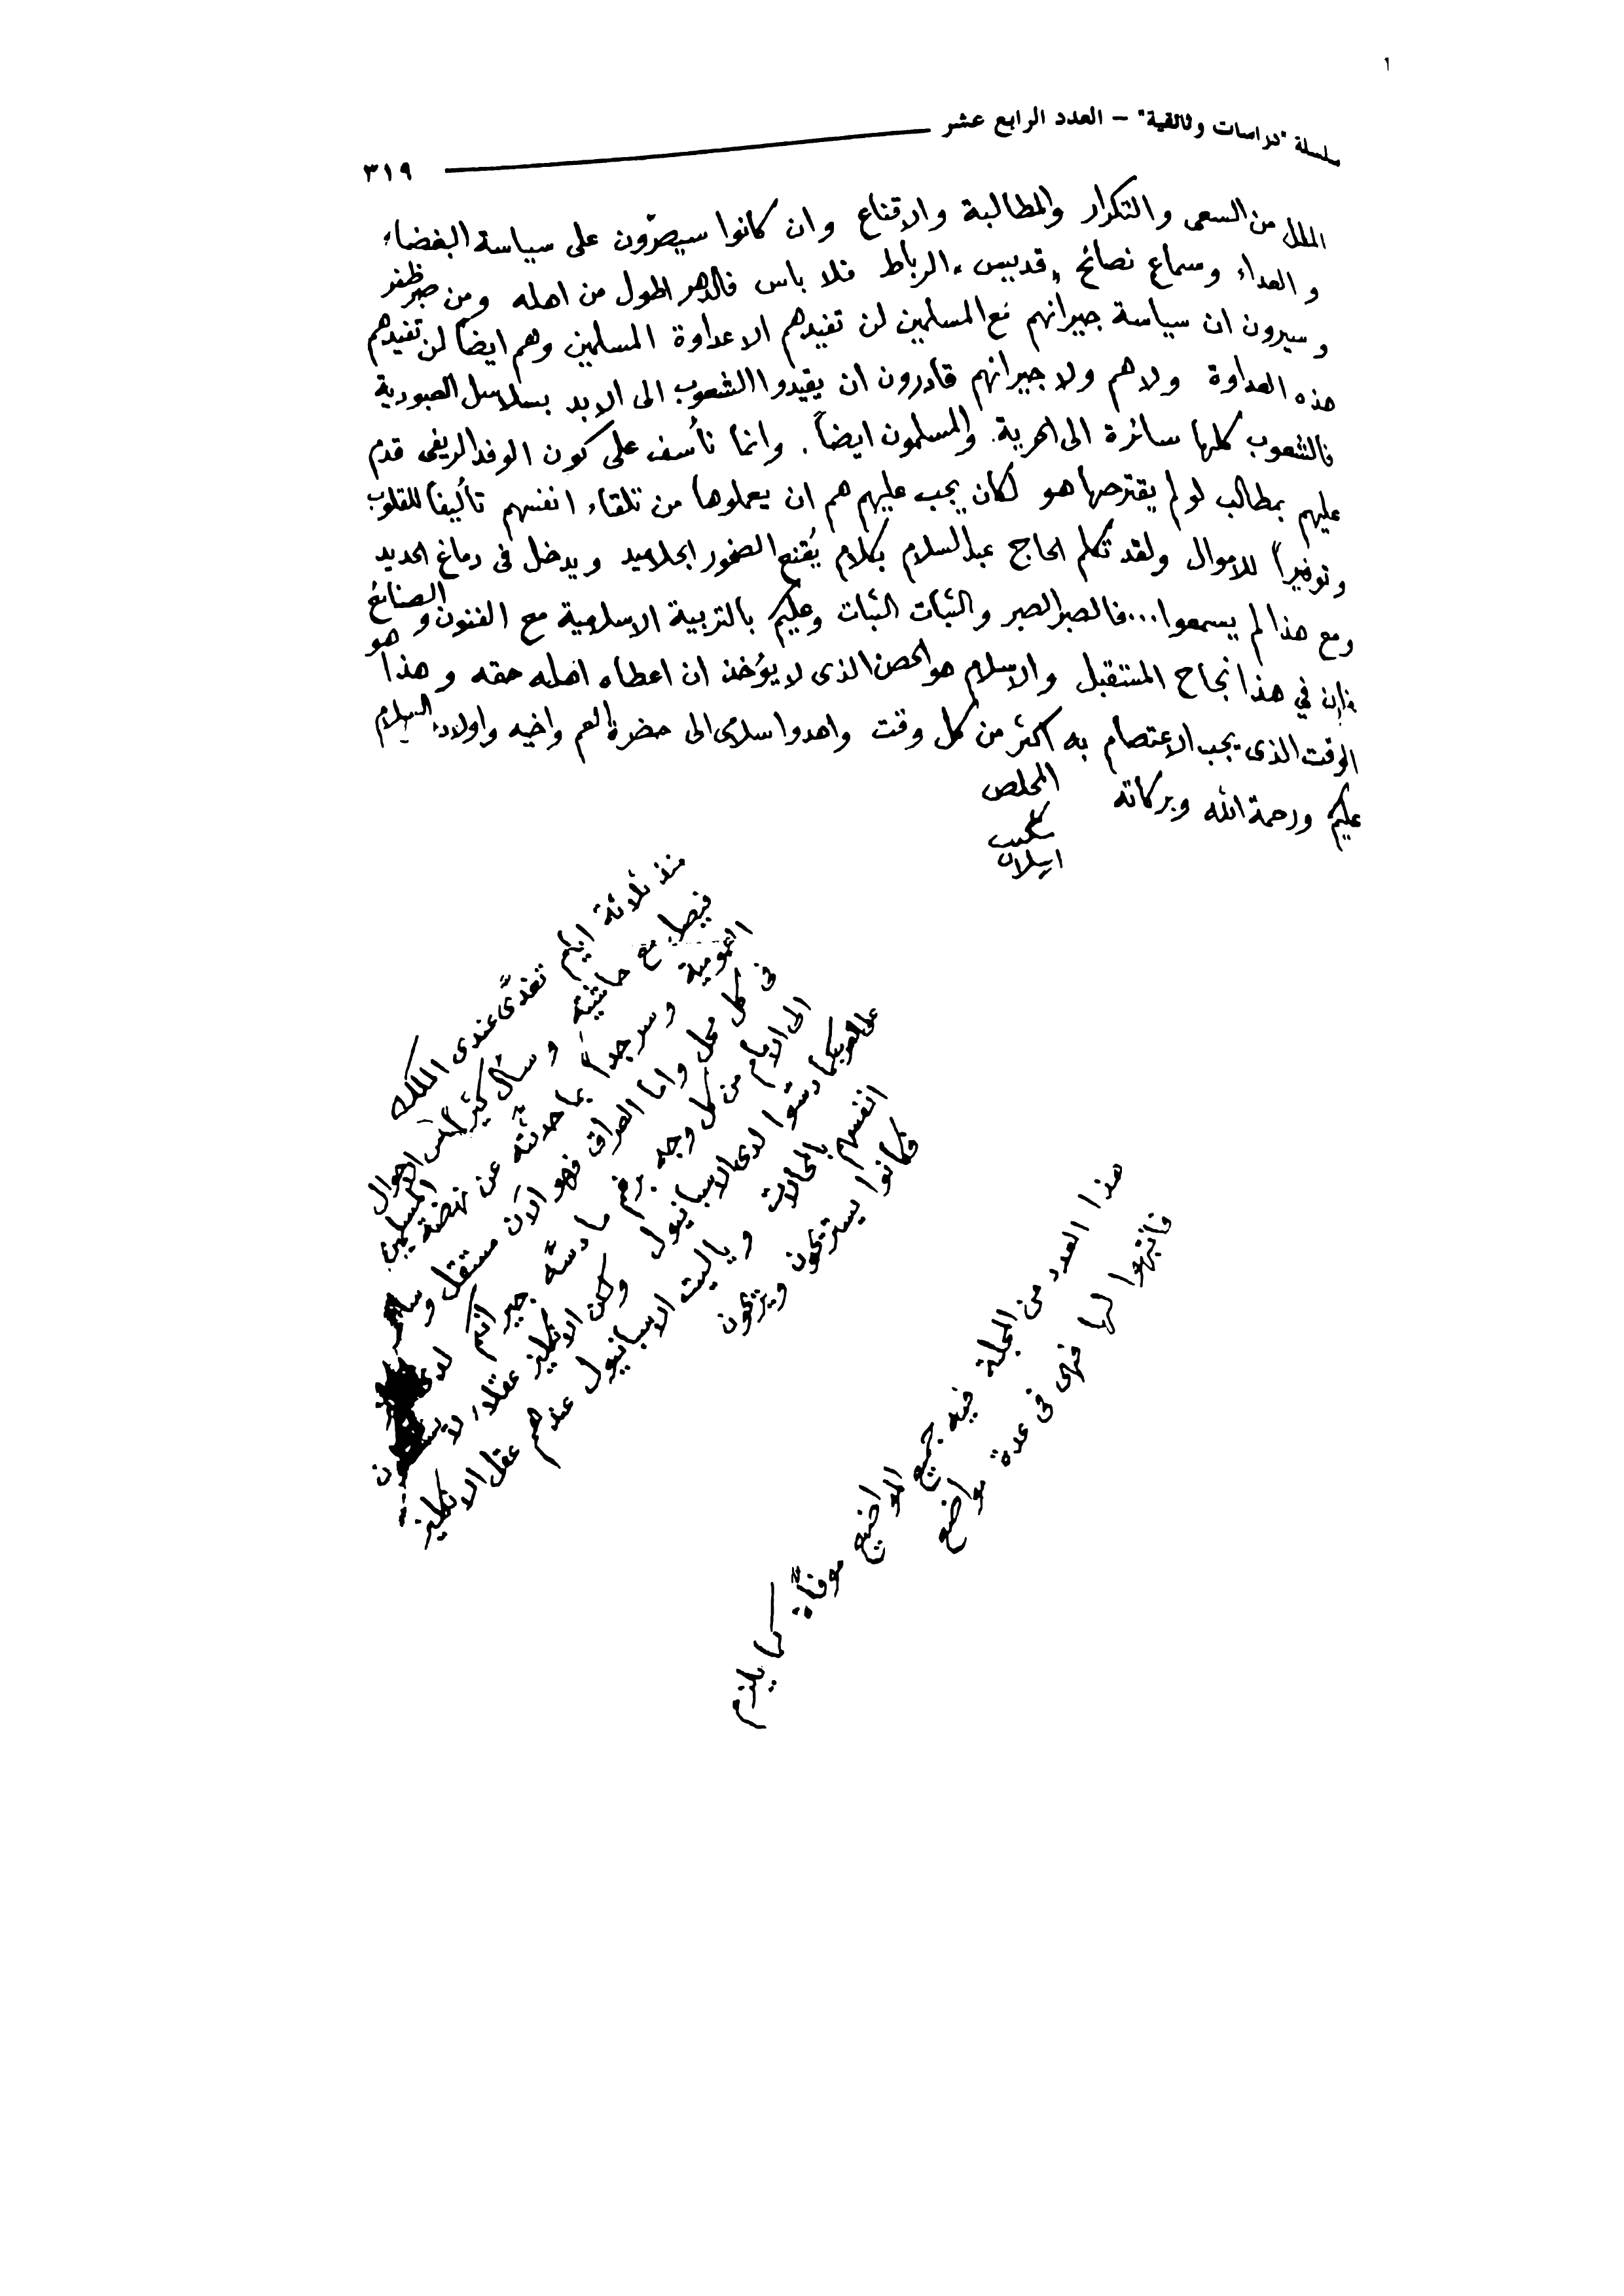 سلسلة "دراسات وثائقية" – العدد الرابع عشر
٣١٩
الملل من السعى والتكرار والمطالبة والاقناع وان كانوا سيصرّون على سياسة البغضاء
و العداء وسماع نصائح „قديس„ الرباط فلا باس فالدهر اطول من اهله ومن صبر ظفر
و سيرون ان سياسة جيرانهم مع المسلمين لن تفيدهم الا عداوة المسلمين وهم ايضاً لن تفيدهم
هذه العداوة ولا هم ولا جيرانهم قادرون ان يقيدوا الشعوب الى الابد بسلاسل العبودية
فالشعوب كلها سائرة الى الحرية. والمسلمون ايضاً. وانما نأسف على كون الوفد الريفى قدم
عليهم بمطالب لو لم يقترحها هو لكان يجب عليهم هم ان يعملوها من تلقاء انفسهم تأليفاً للقلوب
وتوفيراً للاموال ولقد تكلم الحاج عبد السلام بكلام يُقنع الصخور الجلاميد ويدخل فى دماغ الحديد
ومع هذا لم يسمعوا... فالصبر الصبر والثبات الثبات وعليكم بالتربية الاسلامية مع الفنون و الصنائع
فإن في هذا نجاح المستقبل والاسلام هو الحصن الذى لا يؤخذ ان اعطاه اهله حقه و هذا هو
الوقت الذى يجب الاعتصام به اكثر من كل وقت واهدوا سلامى الى حضرة العم واخيه واولاده السلام
عليكم ورحمة الله وبركاته
المخلص
شكيب
ارسلان
منذ ثلاثة ايام تغدّى عندى الملك
فيصل مع حاشيته وسأل كثيراً عن احوال المسلمين
العمومية وسر جداً بما حدثته عن نهضة
فى كل محل واما العراق فهو الآن مستقل وسائر
الى الامام من كل وجه برغم ما دسّه جيرانكم لدى
على العرب كما دسّوا لدى الاسبانيول ولكن الانكليز عقلاء لا
انفسهم بالمحالات وياليت الاسبانيول عندهم عقل الانكليز
فكانوا يستريحون ويريحون
هذا العدد من المجلة فيه جميع المواضيع موفّاة كما يلزم
فانتبهوا لها فهى فى عدة مواضع